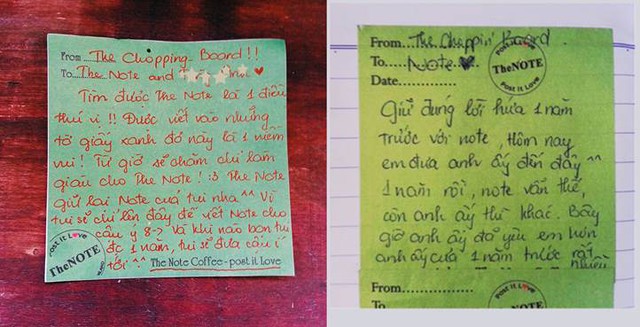 From...The Chopping Board!!
To...The Note and
Tìm được The Note là 1 điều
thú vị!! Được viết vào những
tờ giấy xanh đỏ này là 1 niềm
vui! Từ giờ sẽ chăm chỉ làm
giàu cho The Note! :3 The Note
giữ lại Note của tui nha ^^ Vì
tui sẽ chỉ lên đây để viết Note cho
cậu ý 8-> Và khi nào bọn tui
đc 1 năm, tui sẽ đưa cậu í
tới ^^
The Note Coffee - post it Love
Post it Love
TheNOTE
From...The Choppin' Board
To...Note
Date
Post it Love
TheNOTE
Post it Love
Giữ đúng lời hứa 1 năm
trước với note, hôm nay
em đưa anh ấy đến đây ^^
1 năm rồi, note vẫn thế,
còn anh ấy thì khác. Bây
giờ anh ấy đã yêu em hơn
anh ấy của 1 năm trước rất
nhiều
From
To
Post it Love
TheNOTE